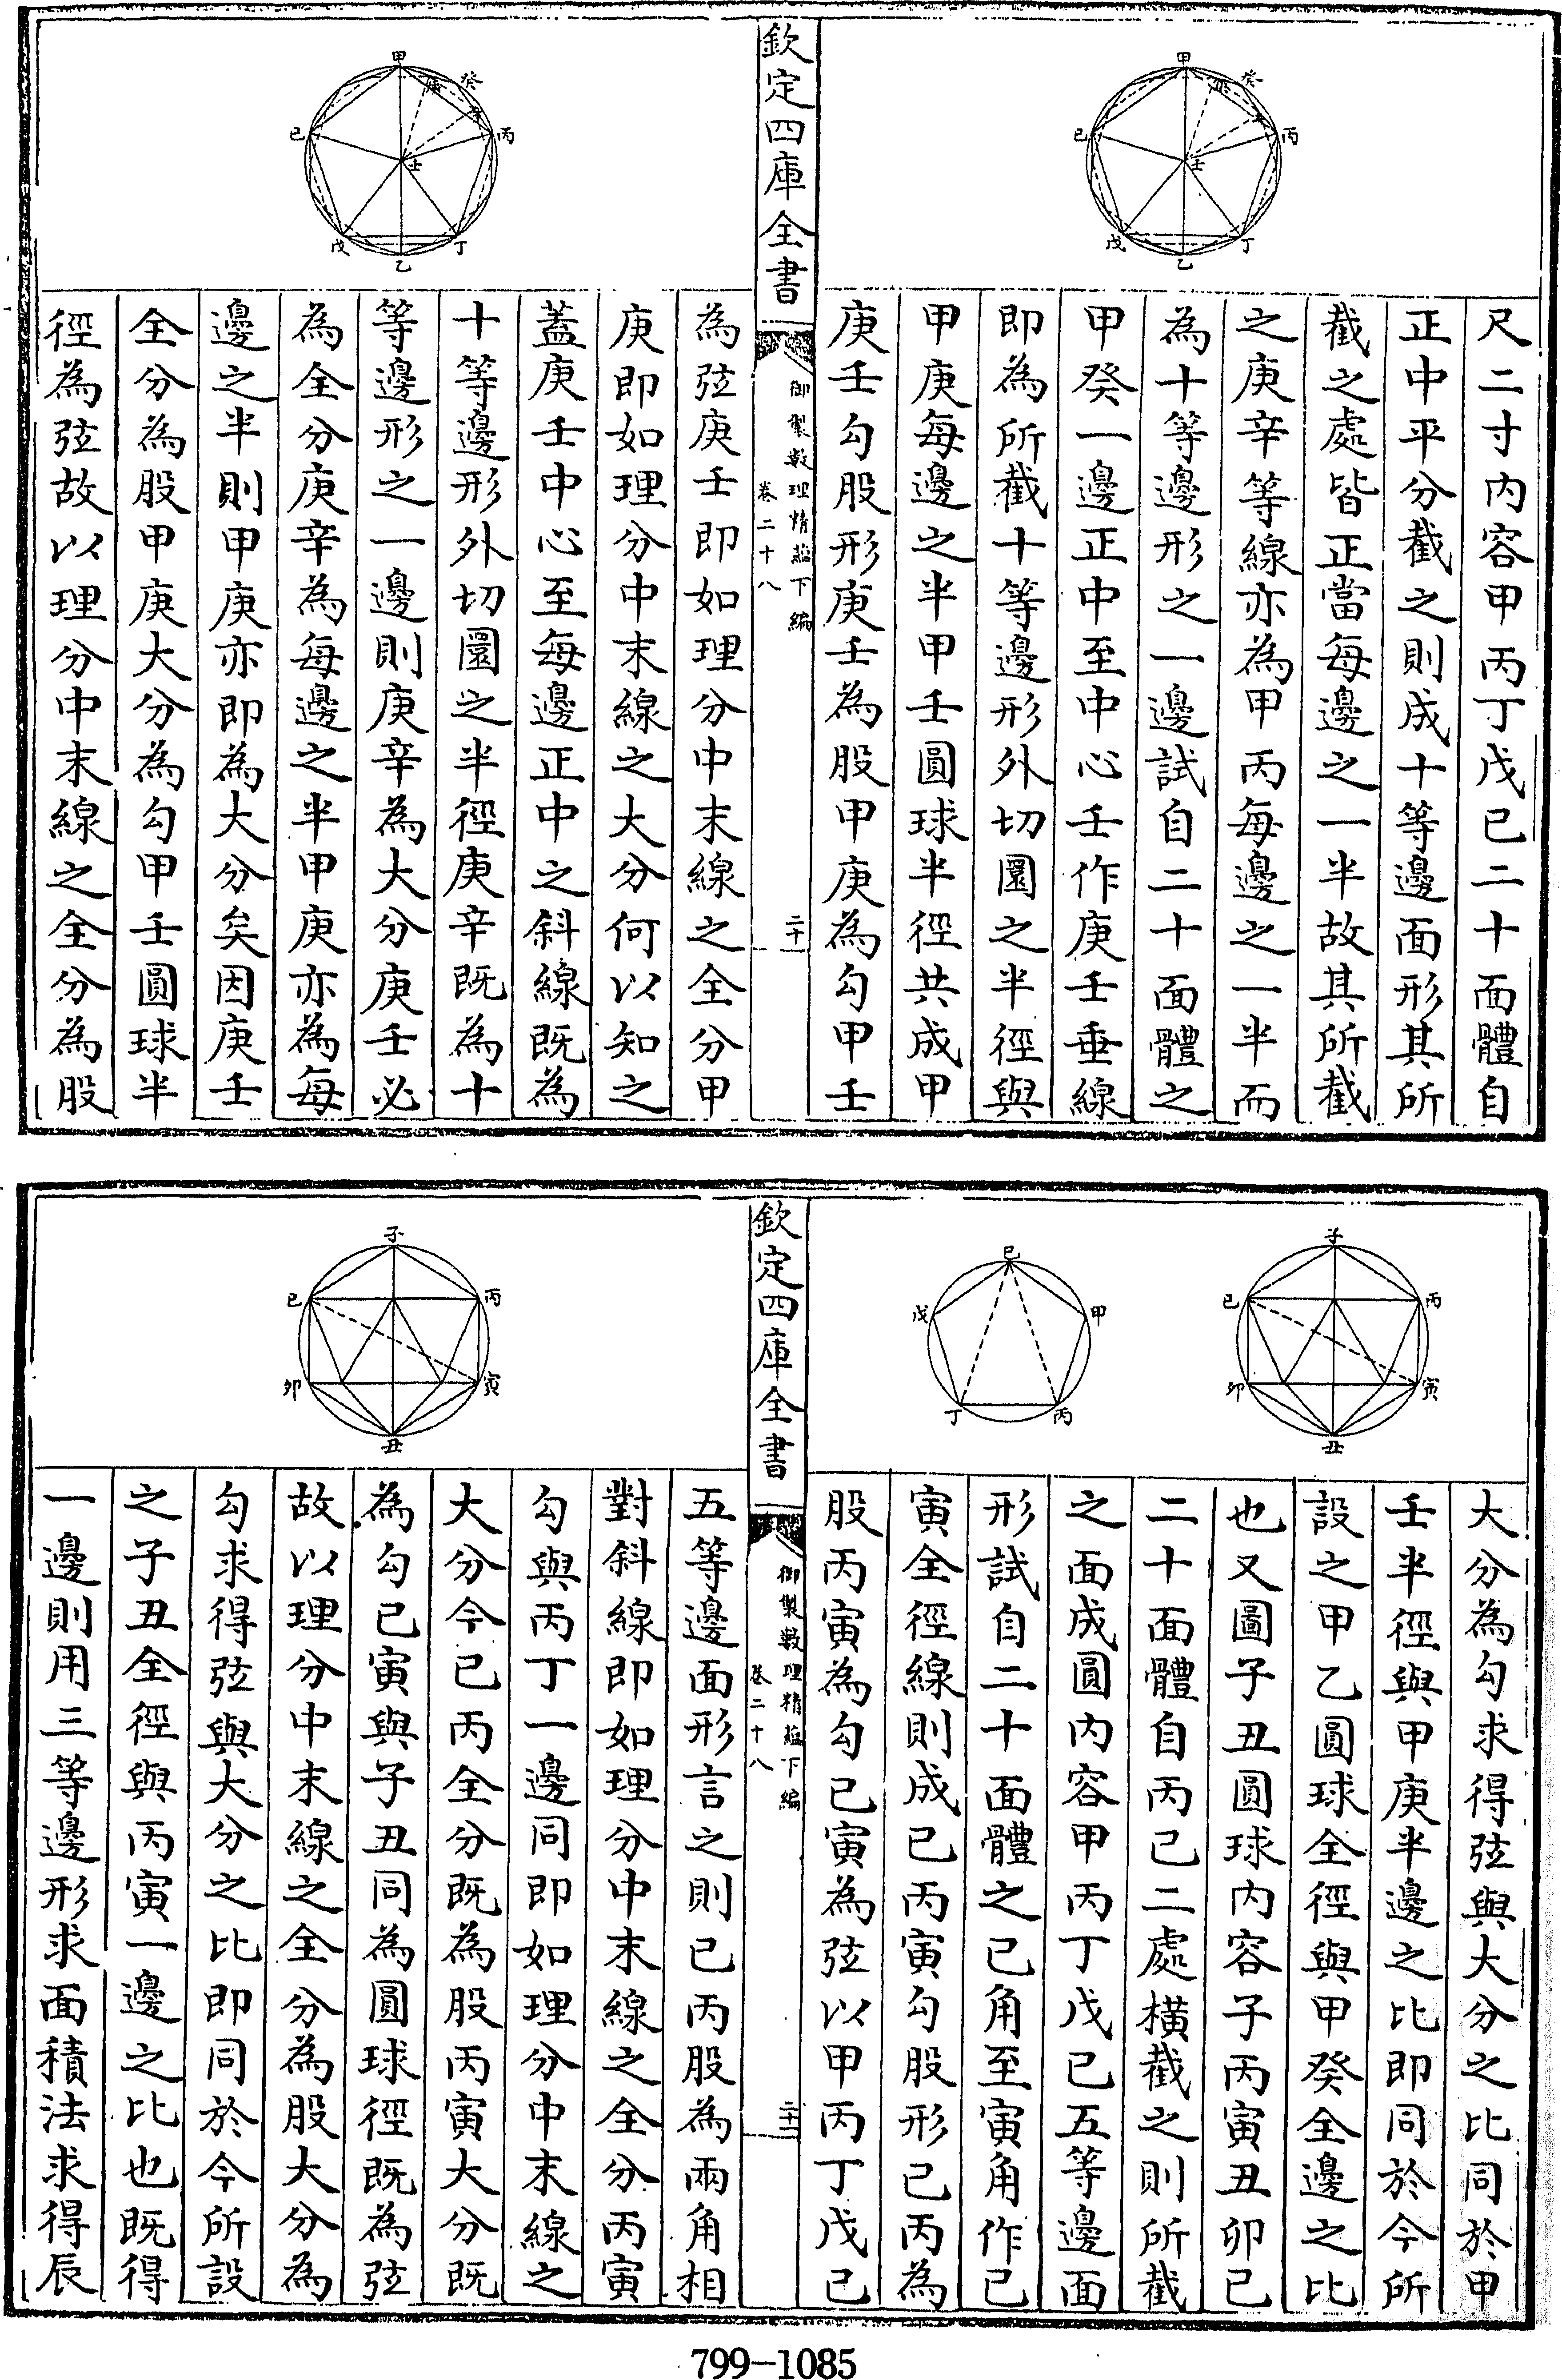 甲
癸
庚
辛
丙
己
壬
戊
丁
乙
尺二寸内容甲丙丁戊己二十面體自
正中平分截之則成十等邊面形其所
截之處皆正當每邊之一半故其所截
之庚辛等線亦為甲丙每邊之一半而
為十等邊形之一邊試自二十面體之
甲癸一邊正中至中心壬作庚壬垂線
即為所截十等邊形外切圜之半徑與
甲庚每邊之半甲壬圓球半徑共成甲
庚壬勾股形庚壬為股甲庚為勾甲壬
欽定四庫全書
御製數理精藴下編
卷二十八
二十一
甲
癸
庚
辛
丙
己
壬
戊
丁
乙
為弦庚壬即如理分中末線之全分甲
庚即如理分中末線之大分何以知之
蓋庚壬中心至每邊正中之斜線既為
十等邊形外切圜之半徑庚辛既為十
等邊形之一邊則庚辛為大分庚壬必
為全分庚辛為每邊之半甲庚亦為每
邊之半則甲庚亦即為大分矣因庚壬
全分為股甲庚大分為勾甲壬圓球半
徑為弦故以理分中末線之全分為股
子
己
丙
卯
寅
丑
己
戊
甲
丁
丙
大分為勾求得弦與大分之比同於甲
壬半徑與甲庚半邊之比即同於今所
設之甲乙圓球全徑與甲癸全邊之比
也又圖子丑圓球内容子丙寅丑卯己
二十面體自丙己二處橫截之則所截
之面成圓内容甲丙丁戊己五等邊面
形試自二十面體之己角至寅角作己
寅全徑線則成己丙寅勾股形己丙為
股丙寅為勾己寅為弦以甲丙丁戊己
欽定四庫全書
御製數理精藴下編
卷二十八
二十二
子
己
丙
卯
寅
丑
五等邊面形言之則己丙股為兩角相
對斜線即如理分中末線之全分丙寅
勾與丙丁一邊同即如理分中末線之
大分今己丙全分既為股丙寅大分既
為勾己寅與子丑同為圓球徑既為弦
故以理分中末線之全分為股大分為
勾求得弦與大分之比即同於今所設
之子丑全徑與丙寅一邊之比也既得
一邊則用三等邊形求面積法求得辰
799-1085